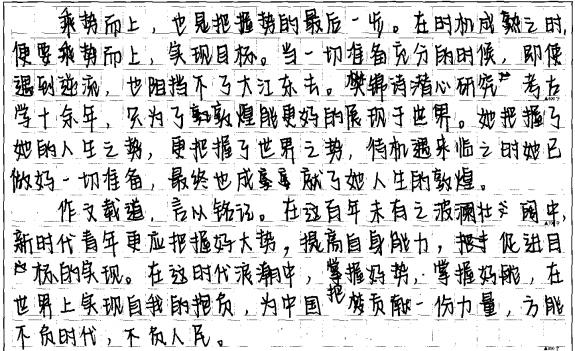 乘势而上，也是把握势的最后一步。在时机成熟之时，
便要乘势而上，实现目标。当一切准备充分的时候，即使
遇到逆流，也阻挡不了大江东去。樊锦诗潜心研究考古
学十余年，只为了敦煌能更好的展现于世界。她把握了
她的人生之势，更把握了世界之势，待机遇来临之时她已
做好一切准备，最终也成就了她人生的敦煌。
作文载道，言以铭记。在这百年未有之波澜壮阔中，
新时代青年更应把握好大势，提高自身能力，促进目
标的实现。在这时代浪潮中，掌握好势，掌握好能，在
世界上实现自我的抱负，为中国贡献一份力量，方能
不负时代，不负人民。